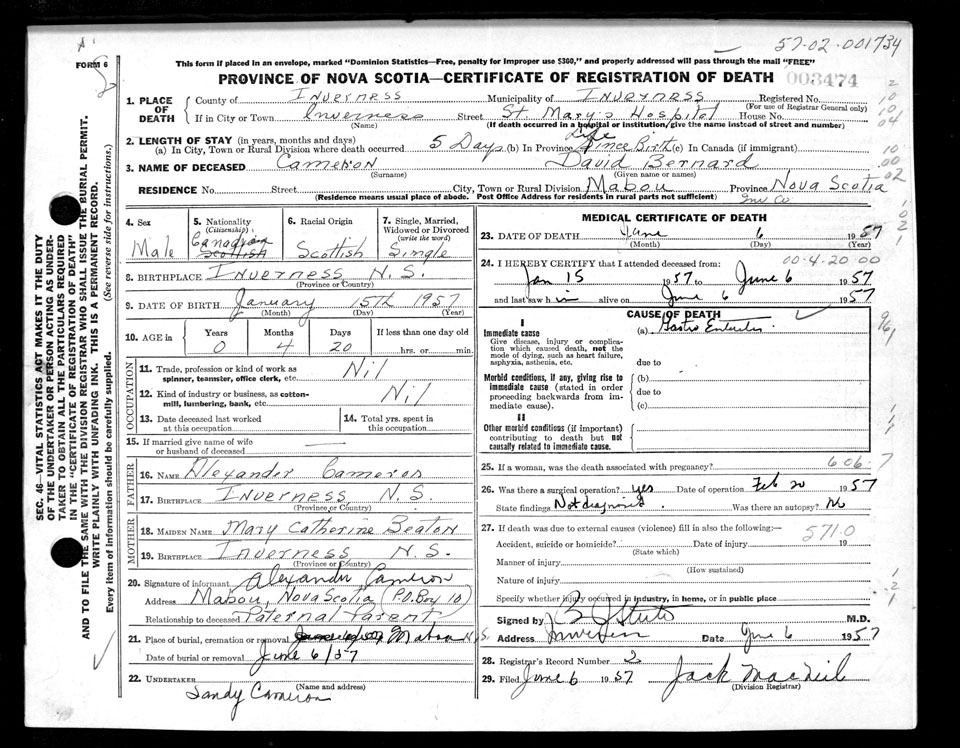 57-02-001734
FORM 6
This form if placed in an envelope, marked "Dominion Statistics—Free, penalty for improper use $300," and properly addressed will pass through the mail "FREE"
PROVINCE OF NOVA SCOTIA—CERTIFICATE OF REGISTRATION OF DEATH 003474
1. PLACE OF DEATH
County of Inverness Municipality of Inverness Registered No.
(For use of Registrar General only)
If in City or Town Inverness Street St. Mary's Hospital House No.
(Name) (If death occurred in a hospital or institution, give the name instead of street and number)
2. LENGTH OF STAY (in years, months and days)
(a) In City, Town or Rural Division where death occurred 5 Days (b) In Province Life Since Birth (c) In Canada (if immigrant)
3. NAME OF DECEASED Cameron David Bernard
(Surname) (Given name or names)
RESIDENCE No. Street City, Town or Rural Division Mabou Province Nova Scotia
(Residence means usual place of abode. Post Office Address for residents in rural parts not sufficient) Inv Co
4. Sex Male
5. Nationality (Citizenship) Canadian Scottish
6. Racial Origin Scottish
7. Single, Married, Widowed or Divorced (write the word) Single
8. BIRTHPLACE Inverness N.S.
(Province or Country)
9. DATE OF BIRTH January 15th 1957
(Month) (Day) (Year)
10. AGE in Years Months Days If less than one day old
0 4 20 hrs. or min.
OCCUPATION
11. Trade, profession or kind of work as spinner, teamster, office clerk, etc. Nil
12. Kind of industry or business, as cotton-mill, lumbering, bank, etc. Nil
13. Date deceased last worked at this occupation
14. Total yrs. spent in this occupation
15. If married give name of wife or husband of deceased —
FATHER
16. NAME Alexander Cameron
17. BIRTHPLACE Inverness, N.S.
(Province or Country)
MOTHER
18. MAIDEN NAME Mary Catherine Beaton
19. BIRTHPLACE Inverness N.S.
(Province or Country)
20. Signature of informant Alexander Cameron
Address Mabou, Nova Scotia (P.O. Box 10)
Relationship to deceased Paternal Parent
21. Place of burial, cremation or removal Mabou N.S.
Date of burial or removal June 6/57
22. UNDERTAKER Sandy Cameron
(Name and address)
MEDICAL CERTIFICATE OF DEATH
23. DATE OF DEATH June 6 1957
(Month) (Day) (Year)
00-4-20-00
24. I HEREBY CERTIFY that I attended deceased from:
Jan 15 1957 to June 6 1957
and last saw him alive on June 6 1957
CAUSE OF DEATH
I
Immediate cause (a) Gastro Enteritis
Give disease, injury or complication which caused death, not the mode of dying, such as heart failure, asphyxia, asthenia, etc.
due to
Morbid conditions, if any, giving rise to immediate cause (stated in order proceeding backwards from immediate cause).
(b)
due to
(c)
II
Other morbid conditions (if important) contributing to death but not causally related to immediate cause.
25. If a woman, was the death associated with pregnancy? 606-7
26. Was there a surgical operation? yes Date of operation Feb 20 1957
State findings Not diagnosed. Was there an autopsy? No
27. If death was due to external causes (violence) fill in also the following:—
571.0
Accident, suicide or homicide? Date of injury 19
(State which)
Manner of injury
(How sustained)
Nature of injury
Specify whether injury occurred in industry, in home, or in public place
Signed by M.D.
Address Inverness Date June 6 1957
28. Registrar's Record Number 2
29. Filed June 6 1957 Jack MacNeil
(Division Registrar)
SEC. 46—VITAL STATISTICS ACT MAKES IT THE DUTY
OF THE UNDERTAKER OR PERSON ACTING AS UNDER-
TAKER TO OBTAIN ALL THE PARTICULARS REQUIRED
IN THE "CERTIFICATE OF REGISTRATION OF DEATH"
AND TO FILE THE SAME WITH THE DIVISION REGISTRAR WHO SHALL ISSUE THE BURIAL PERMIT.
WRITE PLAINLY WITH UNFADING INK. THIS IS A PERMANENT RECORD.
Every item of information should be carefully supplied. (See reverse side for instructions.)